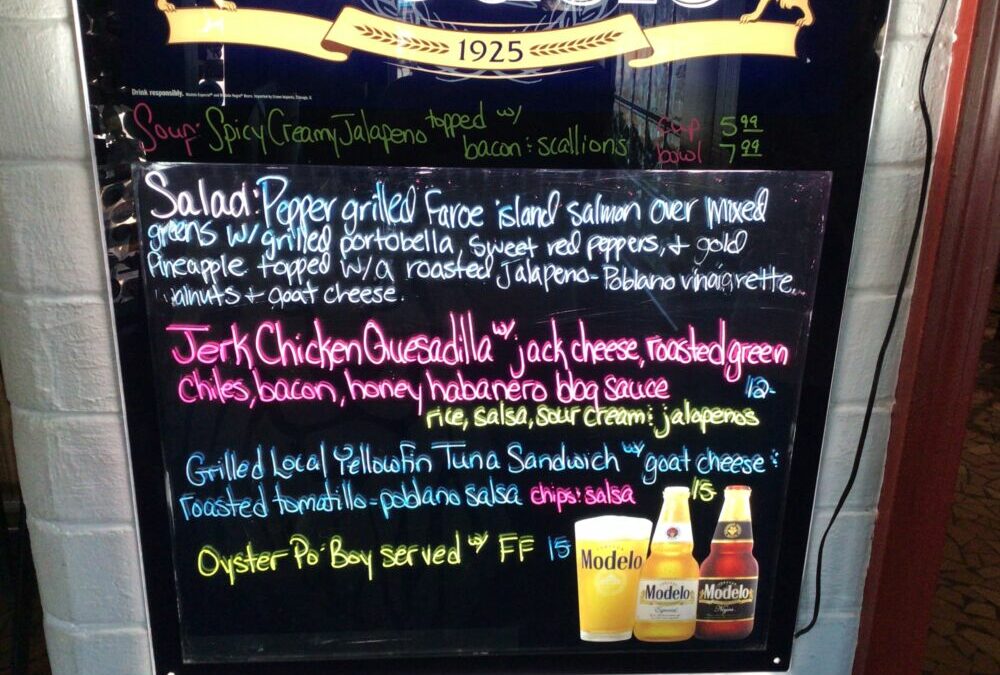 1925
Drink responsibly.
Soup: Spicy Creamy Jalapeno topped w/
bacon & scallions
cup 5.99
bowl 7.99
Salad: Pepper grilled Faroe island salmon over mixed
greens w/ grilled portobella, sweet red peppers, & gold
Pineapple topped w/ a roasted Jalapeno-Poblano vinaigrette..
walnuts + goat cheese.
Jerk Chicken Quesadilla w/ jack cheese, roasted green
chiles, bacon, honey habanero bbq sauce 12-
rice, salsa, sour cream & jalapenos
Grilled Local Yellowfin Tuna Sandwich w/ goat cheese &
roasted tomatillo-poblano salsa chips & salsa 15-
Oyster Po' Boy served w/ FF 15
Modelo
Modelo
Especial
Modelo
Negra